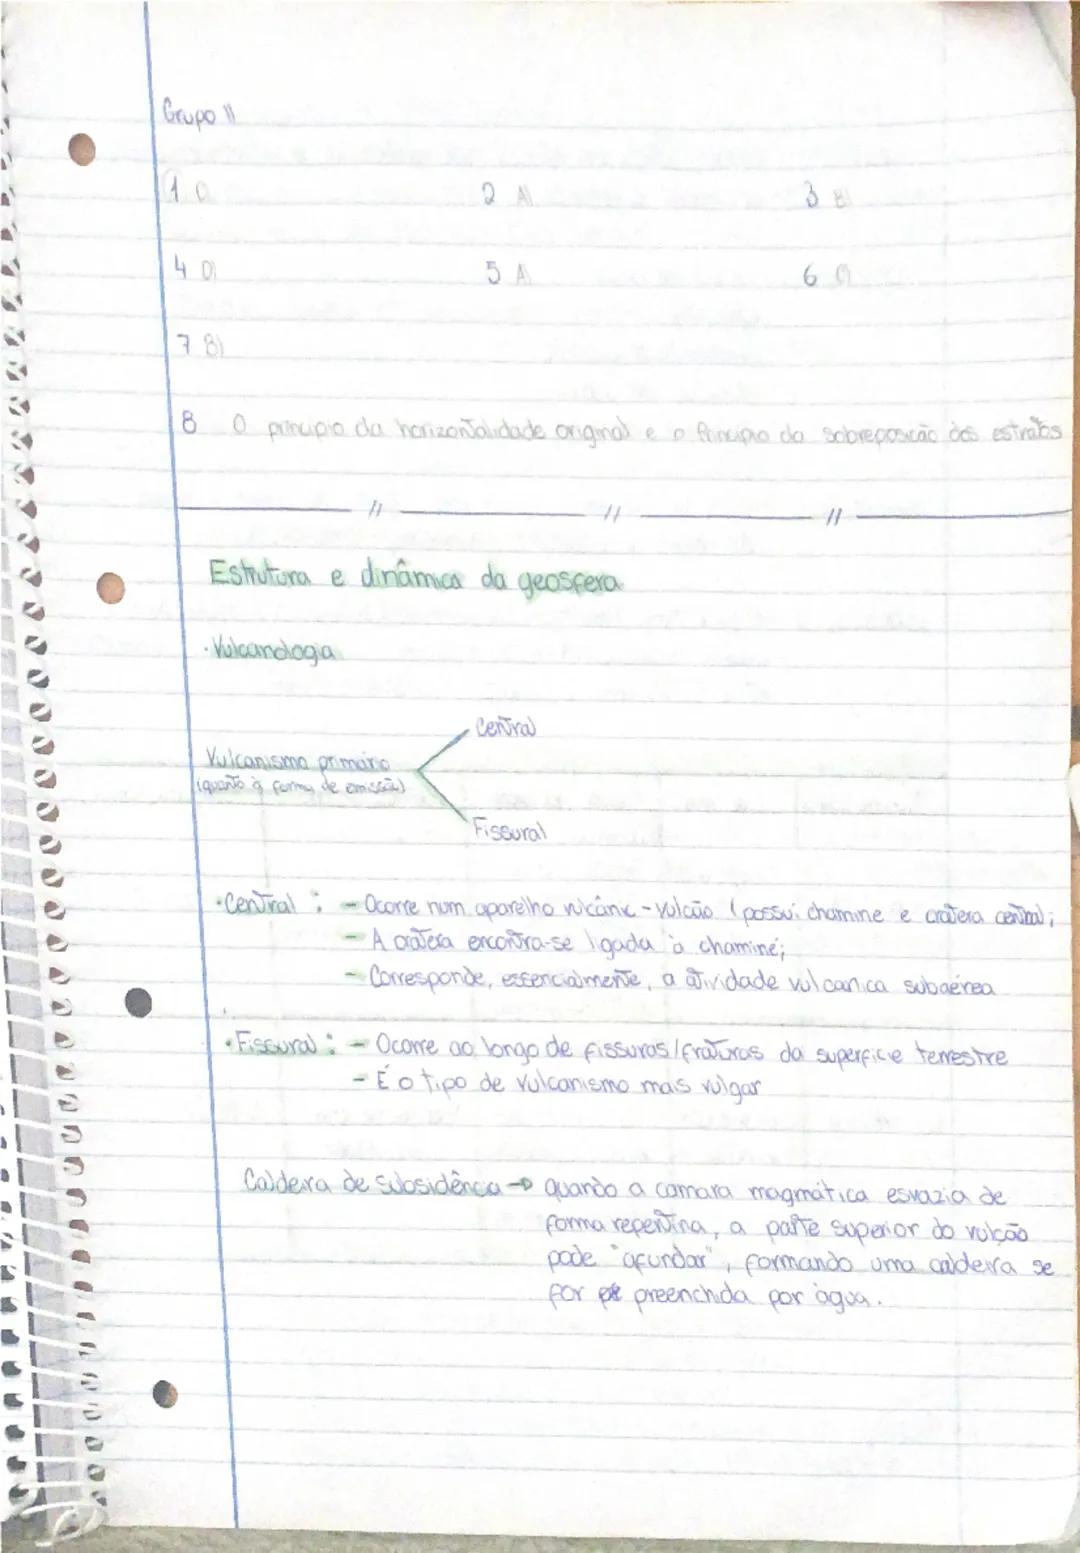 Grupo II
1. 2 A) 3 B)
4 D) 5 A) 6 C)
7 B)
8 O principio da horizontalidade original e o Principio da sobreposicão dos estratos
// // //
Estrutura e dinâmica da geosfera
· Vulcanologia
Central
Vulcanismo primário
(quanto à forma de emissão)
Fissural
· Central : - Ocorre num aparelho vulcânic - vulcão (possui chamine e cratera central;
- A cratera encontra-se ligada à chaminé;
- Corresponde, essencialmente, a atividade vulcanica subaérea
· Fissural : - Ocorre ao longo de fissuras/fraturas da superficie terrestre
- É o tipo de vulcanismo mais vulgar
Caldeira de subsidência → quando a camara magmática esvazia de
forma repentina, a parte superior do vulcão
pode "afundar", formando uma caldeira se
for preenchida por água.